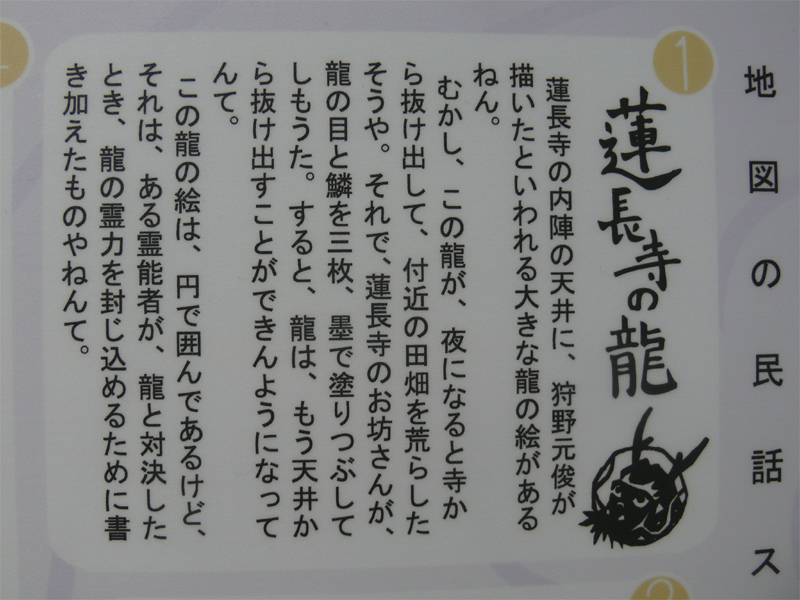 地図の民話ス
1
蓮長寺の龍
蓮長寺の内陣の天井に、狩野元俊が
描いたといわれる大きな龍の絵がある
ねん。
むかし、この龍が、夜になると寺か
ら抜け出して、付近の田畑を荒らした
そうや。それで、蓮長寺のお坊さんが、
龍の目と鱗を三枚、墨で塗りつぶして
しもうた。すると、龍は、もう天井か
ら抜け出すことができんようになって
んて。
この龍の絵は、円で囲んであるけど、
それは、ある霊能者が、龍と対決した
とき、龍の霊力を封じ込めるために書
き加えたものやねんて。